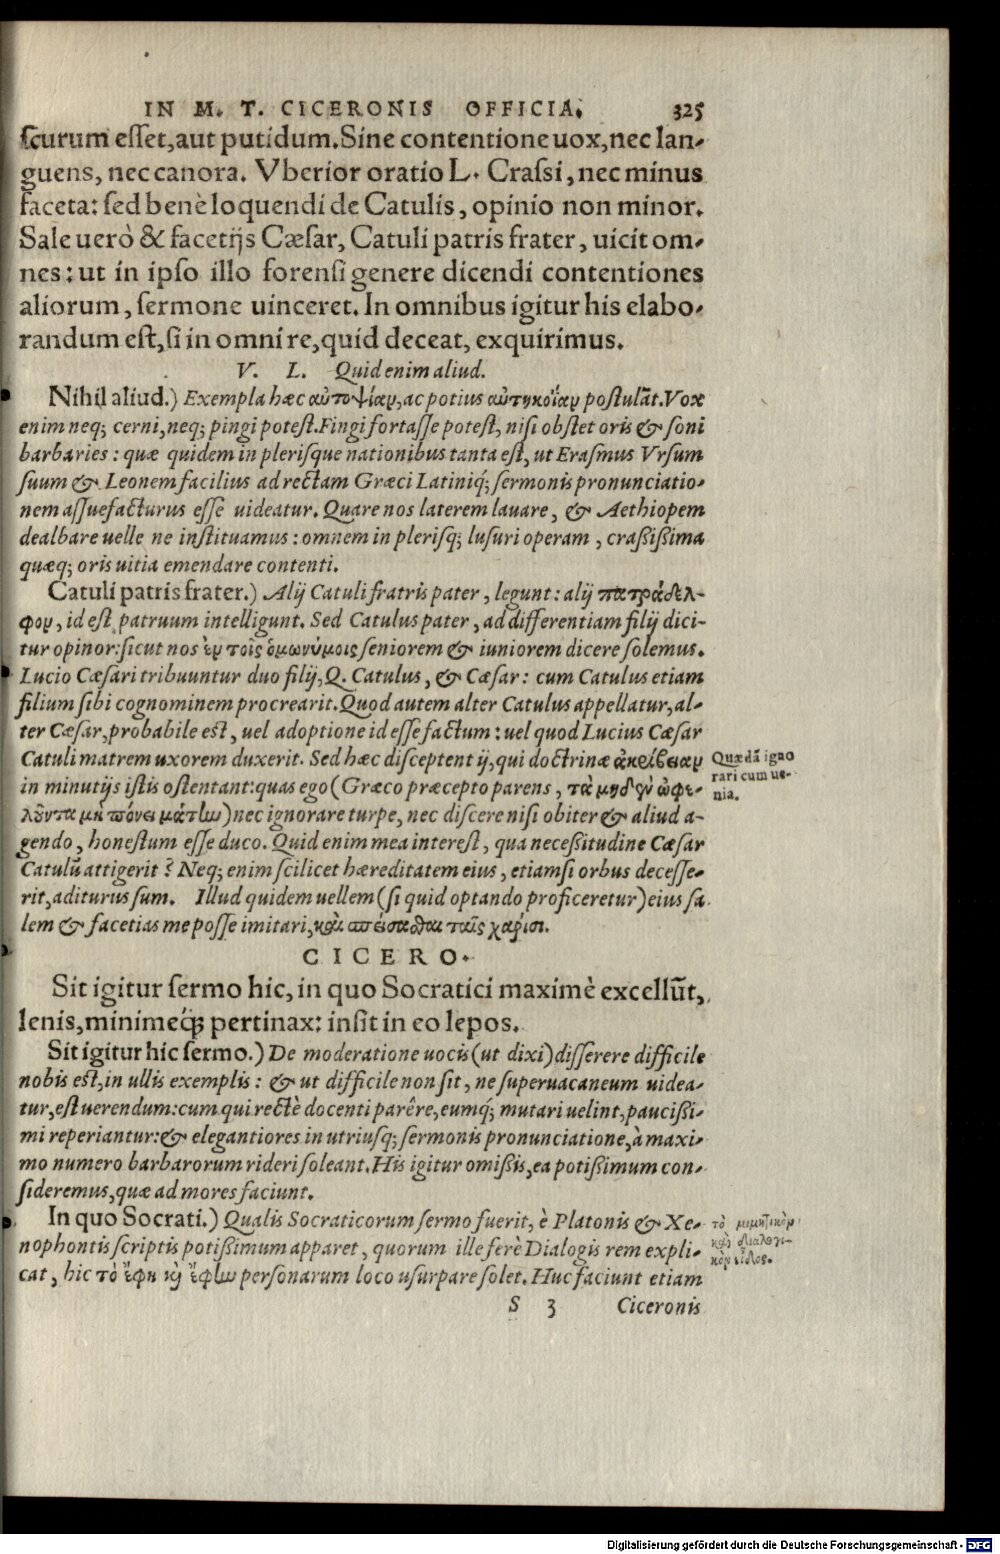 IN M. T. CICERONIS OFFICIA. 325
ſcurum eſſet, aut putidum. Sine contentione uox, nec lan-
guens, nec canora. Vberior oratio L. Craſsi, nec minus
faceta: ſed benè loquendi de Catulis, opinio non minor.
Sale uerò & facetijs Cæſar, Catuli patris frater, uicit om-
nes: ut in ipſo illo forenſi genere dicendi contentiones
aliorum, ſermone uinceret. In omnibus igitur his elabo-
randum eſt, ſi in omni re, quid deceat, exquirimus.
V. L. Quid enim aliud.
Nihil aliud.) Exempla hæc αὐτοψίαν, ac potius αὐτηκοΐαν poſtulāt. Vox
enim neq; cerni, neq; pingi poteſt. Fingi fortaſſe poteſt, niſi obſtet oris & ſoni
barbaries: quæ quidem in pleriſque nationibus tanta eſt, ut Eraſmus Vrſum
ſuum & Leonem facilius ad rectam Græci Latiniq́; ſermonis pronunciatio-
nem aſſuefacturus eſſe uideatur. Quare nos laterem lauare, & Aethiopem
dealbare uelle ne inſtituamus: omnem in pleriſq; luſuri operam, craßißima
quæq; oris uitia emendare contenti.
Catuli patris frater.) Alij Catuli fratris pater, legunt: alij πατράδελ-
φον, id eſt patruum intelligunt. Sed Catulus pater, ad differentiam filij dici-
tur opinor: ſicut nos ἐν τοῖς ὁμωνύμοις ſeniorem & iuniorem dicere ſolemus.
Lucio Cæſari tribuuntur duo filij, Q. Catulus, & Cæſar: cum Catulus etiam
filium ſibi cognominem procrearit. Quod autem alter Catulus appellatur, al-
ter Cæſar, probabile eſt, uel adoptione id eſſe factum: uel quod Lucius Cæſar
Catuli matrem uxorem duxerit. Sed hæc diſceptent ij, qui doctrinæ ἀκρίβειαν
in minutijs iſtis oſtentant: quas ego (Græco præcepto parens, τὰ μηδὲν ὠφε-
λοῦντα μὴ πόνει μάτην) nec ignorare turpe, nec diſcere niſi obiter & aliud a-
gendo, honeſtum eſſe duco. Quid enim mea intereſt, qua neceßitudine Cæſar
Catulū attigerit? Neq; enim ſcilicet hæreditatem eius, etiamſi orbus deceſſe-
rit, aditurus ſum. Illud quidem uellem (ſi quid optando proficeretur) eius ſa-
lem & facetias me poſſe imitari, καὶ σπείσασθαι ταῖς χάρισι.
Quædā igno
rari cum ue-
nia.
CICERO.
Sit igitur ſermo hic, in quo Socratici maximè excellūt,
lenis, minimeq́; pertinax: inſit in eo lepos.
Sit igitur hic ſermo.) De moderatione uocis (ut dixi) diſſerere difficile
nobis eſt, in ullis exemplis: & ut difficile non ſit, ne ſuperuacaneum uidea-
tur, eſt uerendum: cum qui rectè docenti parêre, eumq́; mutari uelint, paucißi-
mi reperiantur: & elegantiores in utriuſq; ſermonis pronunciatione, à maxi-
mo numero barbarorum rideri ſoleant. His igitur omißis, ea potißimum con-
ſideremus, quæ ad mores faciunt.
In quo Socrati.) Qualis Socraticorum ſermo fuerit, è Platonis & Xe-
nophontis ſcriptis potißimum apparet, quorum ille ferè Dialogis rem expli-
cat, hic τὸ ἔφη κỳ ἔφην perſonarum loco uſurpare ſolet. Huc faciunt etiam
τὸ μιμητικὸν
καὶ διαλογι-
κὸν εἶδος.
S 3 Ciceronis
Digitalisierung gefördert durch die Deutsche Forschungsgemeinschaft - DFG